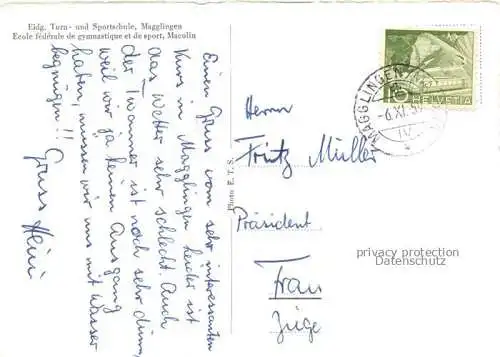 Eidg. Turn- und Sportschule, Magglingen
Ecole fédérale de gymnastique et de sport, Macolin
Einen Gruss vom sehr interessanten
Kurs in Magglingen leider ist
das Wetter sehr schlecht. Auch
der Twanner ist noch sehr dünn,
weil wir ja keinen Ausgang
haben, müssen wir uns mit Wasser
begnügen!!
Gruss Heini
Photo E.T.S.
HELVETIA
MAGGLINGEN
-6.XI.5
Herrn
Fritz Müller
Präsident
Frau
Züge
privacy protection
Datenschutz